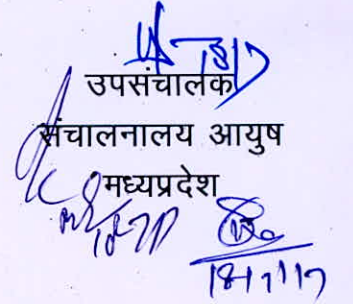 उपसंचालक
संचालनालय आयुष
मध्यप्रदेश
18/7/17